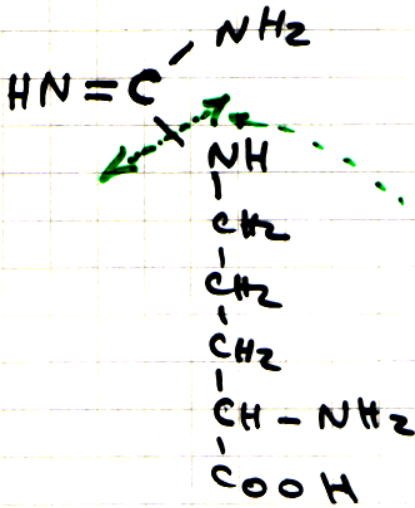 NH2
HN=C
NH
CH2
CH2
CH2
CH-NH2
COOH